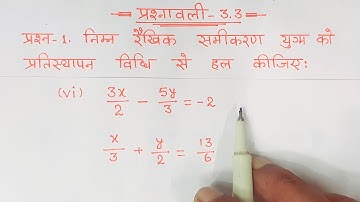 प्रश्नावली - 3.3
प्रश्न-1. निम्न रैखिक समीकरण युग्म को
प्रतिस्थापन विधि से हल कीजिए:
(vi) 3x/2 - 5y/3 = -2
x/3 + y/2 = 13/6